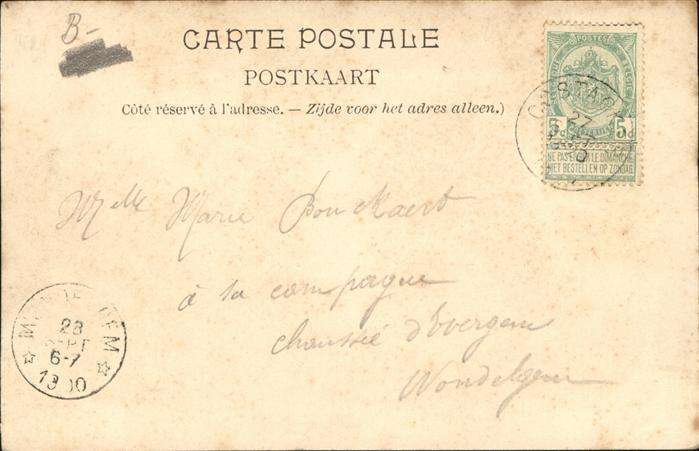 B-
CARTE POSTALE
POSTKAART
Côté réservé à l'adresse. — Zijde voor het adres alleen.)
POSTES
5c 5c
NE PAS LIVRER LE DIMANCHE
NIET BESTELLEN OP ZONDAG
27
Melle Marie Bouckaert
à sa campagne
chaussée d'Evergem
Wondelgem
28
SEPT
6-7
1900